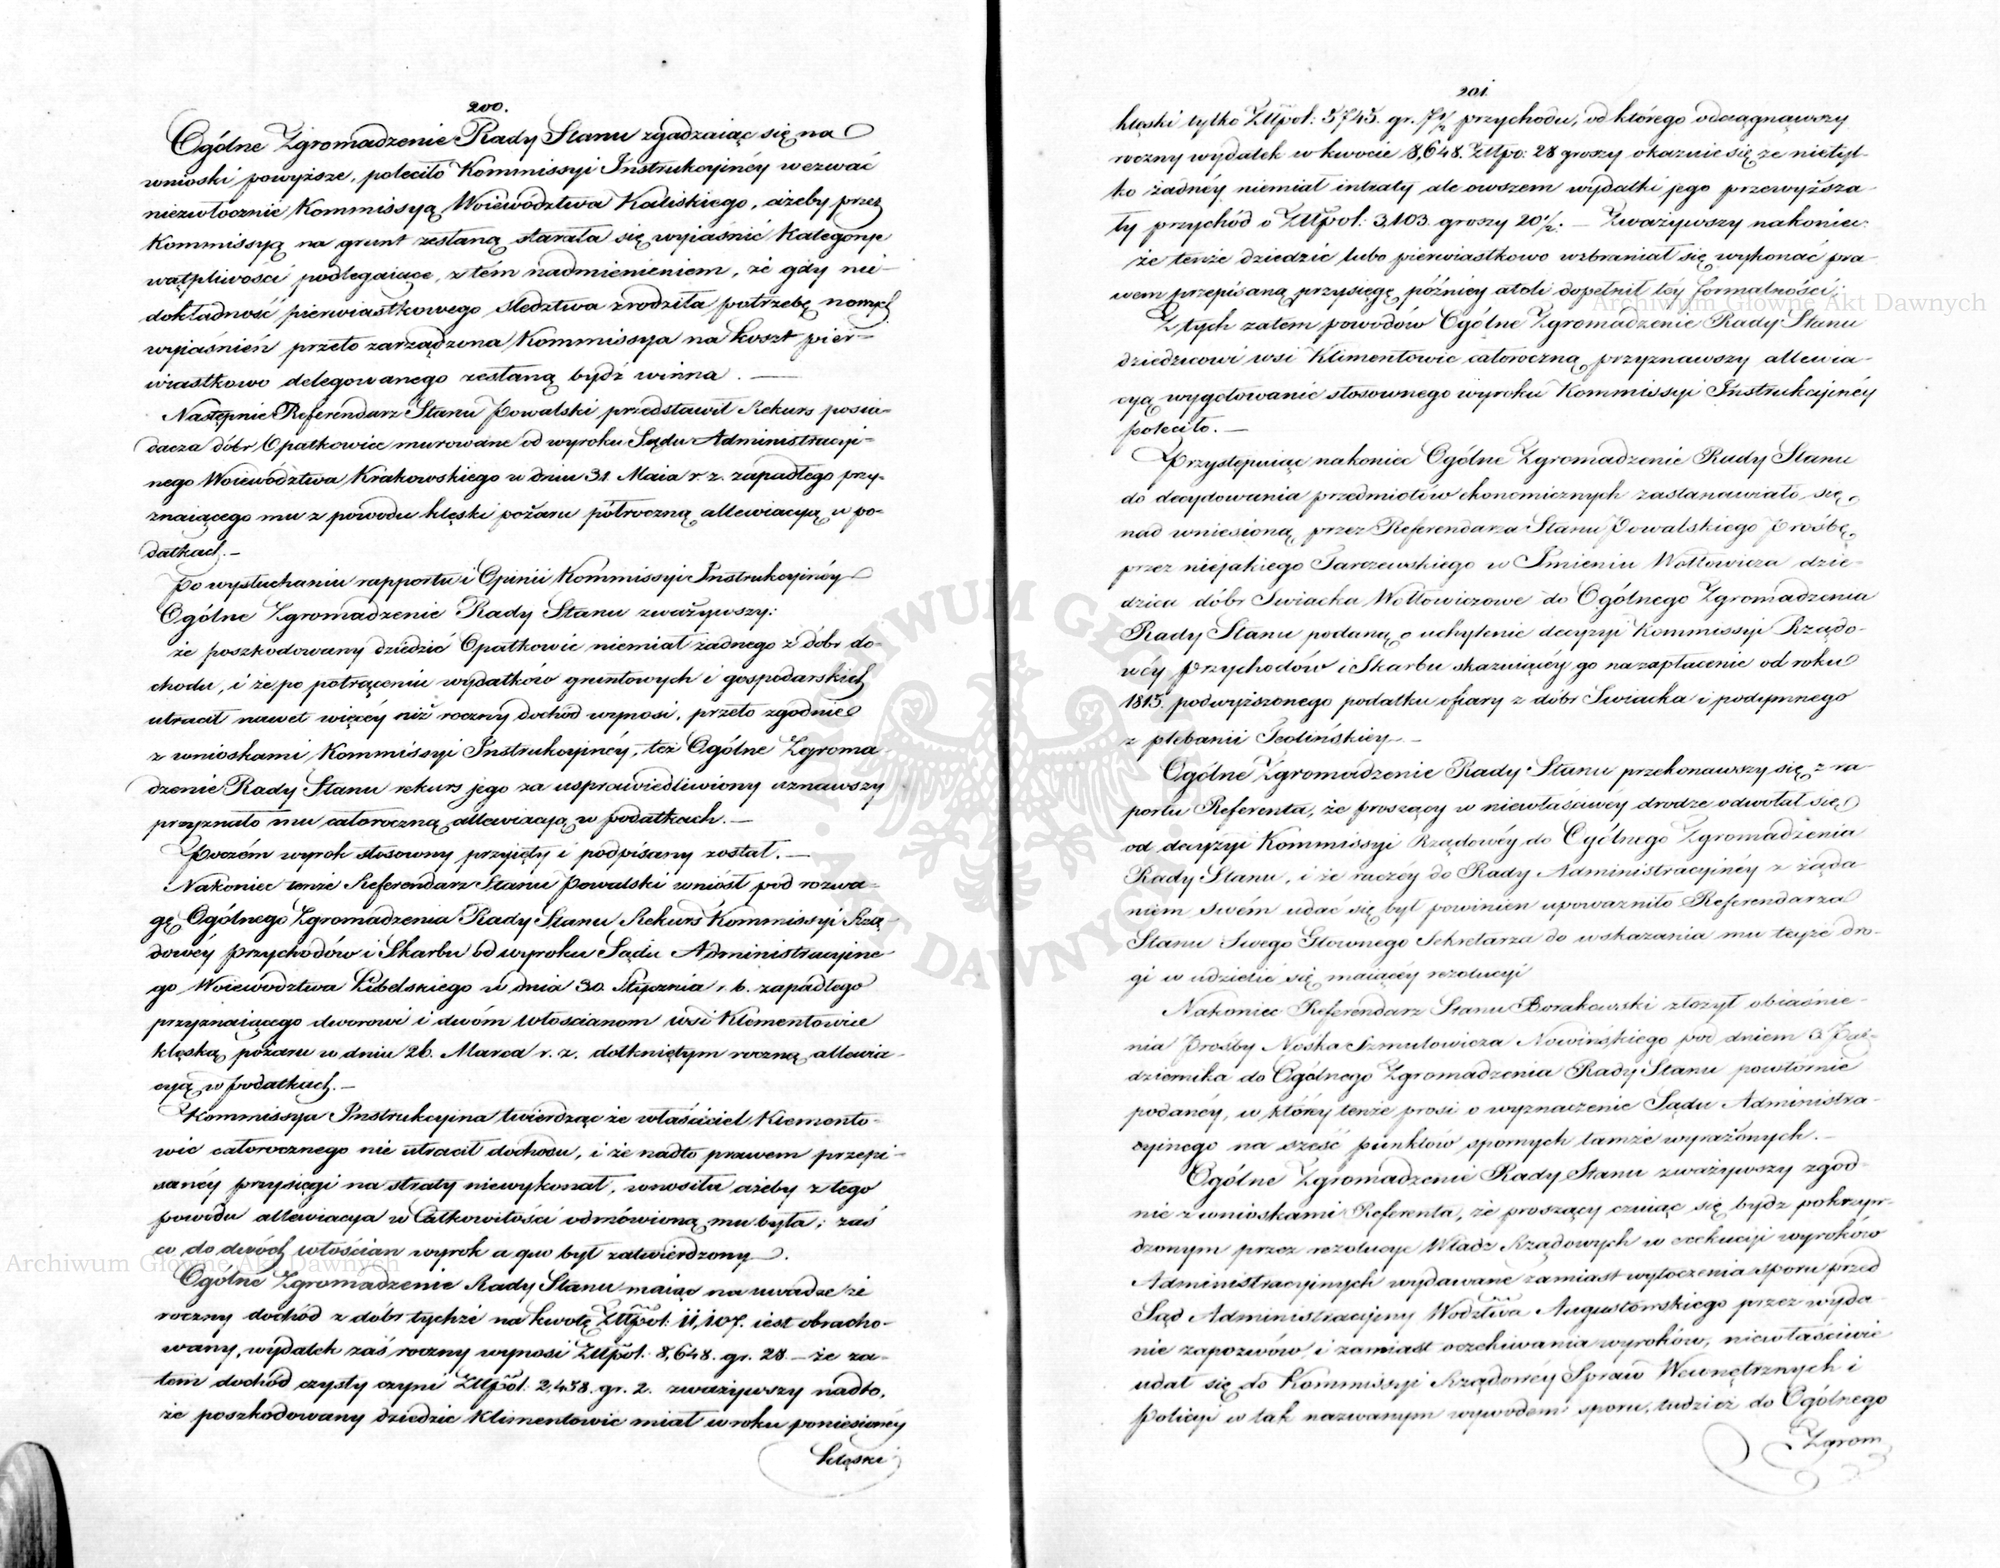 200.
Ogólne Zgromadzenie Rady Stanu zgadzaiąc się na
wnioski powyższe, poleciło Kommissyi Instrukcyinéy wezwać
niezwłocznie Kommissyą Woiewództwa Kaliskiego, ażeby przez
Kommissyą na grunt zesłaną starała się wyiaśnić Kategorye
wątpliwości podlegaiące, z tém nadmienieniem, że gdy nie-
dokładność pierwiastkowego śledztwa zrodziła potrzebę nowych
wyiaśnień przeto zarządzona Kommissya na koszt pier-
wiastkowo delegowanego zesłaną bydź winna. —
Następnie Referendarz Stanu Powalski przedstawił Rekurs posia-
dacza dóbr Opatkowice murowane od wyroku Sądu Administracyi-
nego Woiewództwa Krakowskiego w dniu 31. Maia r. z. zapadłego przy-
znaiącego mu z powodu klęski pożaru półroczną allewiacyą w po-
datkach. —
Po wysłuchaniu rapportu i Opinii Kommissyi Instrukcyinéy
Ogólne Zgromadzenie Rady Stanu zważywszy:
że poszkodowany dziedzic Opatkowic niemiał żadnego z dóbr do-
chodu, i że po potrąceniu wydatków gruntowych i gospodarskich
utracił nawet więcéy niż roczny dochód wynosi, przeto zgodnie
z wnioskami Kommissyi Instrukcyinéy, też Ogólne Zgroma-
dzenie Rady Stanu rekurs jego za usprawiedliwiony uznawszy
przyznało mu całoroczną allewiacyą w podatkach. —
Poczém wyrok stosowny przyięty i podpisany został. —
Nakoniec tenże Referendarz Stanu Powalski wniósł pod rozwa-
gę Ogólnego Zgromadzenia Rady Stanu Rekurs Kommissyi Rzą-
dowéy Przychodów i Skarbu od wyroku Sądu Administracyine-
go Woiewództwa Lubelskiego w dnia 30. Stycznia r. b. zapadłego
przyznaiącego dworowi i dwóm włościanom wsi Klementowice
klęską pożaru w dniu 26. Marca r. z. dotkniętym roczną allewia-
cyą w podatkach. —
Kommissya Instrukcyina twierdząc że właściciel Klemento-
wic całorocznego nie utracił dochodu, i że nadto prawem przepi-
sanéy przysięgi na straty niewykonał, wnosiła ażeby z tego
powodu allewiacya w Całkowitości odmówioną mu była; zaś
co do dwóch włościan wyrok a quo był zatwierdzony.
Ogólne Zgromadzenie Rady Stanu maiąc na uwadze że
roczny dochód z dóbr tychże na kwotę Złłpol. 11,107. iest obracho-
wany, wydatek zaś roczny wynosi Złłpol. 8,648. gr. 28 — że za-
tem dochód czysty czyni Złłpol: 2,458. gr. 2. zważywszy nadto,
że poszkodowany dziedzic Klimentowic miał w roku poniesionéy
klęski
201.
klęski tylko Złłpol: 5745. gr. 7 1/2 przychodu, od którego odciągnąwszy
roczny wydatek w kwocie 8,648. Złłpo: 28 groszy okazuie się że nietyl-
ko żadnéy niemiał intraty ale owszem wydatki jego przewyższa-
ły przychód o Złłpol: 3,103. groszy 20 1/2. — Zważywszy nakoniec:
że tenże dziedzic lubo pierwiastkowo wzbraniał się wykonać pra-
wem przepisaną przysięgę, późniey atoli dopełnił téy formalności;
Z tych zatem powodów Ogólne Zgromadzenie Rady Stanu
dziedzicowi wsi Klimentowic całoroczną, przyznawszy allewia-
cyą wygotowanie stosownego wyroku Kommissyi Instrukcyinéy
poleciło. —
Przystępuiąc nakoniec Ogólne Zgromadzenie Rady Stanu
do decydowania przedmiotów ekonomicznych zastanawiało się
nad wniesioną przez Referendarza Stanu Powalskiego Prośbę,
przez niejakiego Tarczewskiego w Imieniu Wołłowicza dzie-
dzica dóbr Swiacka Wołłowiczowe do Ogólnego Zgromadzenia
Rady Stanu podaną o uchylenie decyzyi Kommissyi Rządo-
wéy Przychodów i Skarbu skazuiącéy go na zapłacenie od roku
1815. podwyższonego podatku ofiary z dóbr Swiacka i podymnego
z plebanii Teolińskiéy. —
Ogólne Zgromadzenie Rady Stanu przekonawszy się z ra-
portu Referenta, że proszący w niewłaściwéy drodze odwołał się
od decyzyi Kommissyi Rządowéy do Ogólnego Zgromadzenia
Rady Stanu, i że raczéy do Rady Administracyinéy z żąda-
niem swém udać się był powinien upoważniło Referendarza
Stanu Swego Głownego Sekretarza do wskazania mu teyże dro-
gi w udzielić się maiącéy rezolucyi
Nakoniec Referendarz Stanu Borakowski złożył obiaśnie-
nia Prośby Noska Szmulowicza Nowińskiego pod dniem 3 Paź-
dziernika do Ogólnego Zgromadzenia Rady Stanu powtórnie
podanéy, w któréy tenże prosi o wyznaczenie Sądu Administra-
cyinego na sześć punktów spornych tamże wyrażonych. —
Ogólne Zgromadzenie Rady Stanu zważywszy zgod-
nie z wnioskami Referenta, że proszący czuiąc się bydź pokrzyw-
dzonym przez rezolucye Władz Rządowych w exekucyi wyroków
Administracyinych wydawane zamiast wytoczenia sporu przed
Sąd Administracyiny Wodztwa Augustowskiego przez wyda-
nie zapozwów i zamiast oczekiwania wyroków, niewłaściwie
udał się do Kommissyi Rządowéy Spraw Wewnętrznych i
Policyi w tak nazwanym wywodem sporu, tudzież do Ogólnego
Zgrom
Archiwum Główne Akt Dawnych
Archiwum Główne Akt Dawnych